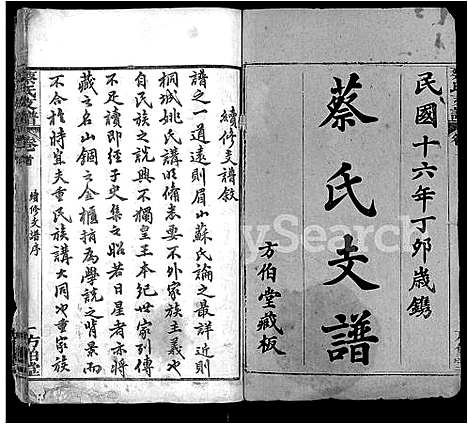 民國十六年丁卯歲鐫
蔡氏支譜
方伯堂藏板
續修支譜敘
譜之一道遠則眉山蘇氏論之最詳近則
桐城姚氏講明備志要不外家族主義也
自民族之說興不獨皇王本紀世家列傳
不足讀即經子史集之昭若日星者亦將
藏之名山錮之金櫃指為學說之背景而
不合種時宜夫重民族講大同也重家族
蔡氏支譜
卷首
續修支譜序
一
方伯堂
ySearch